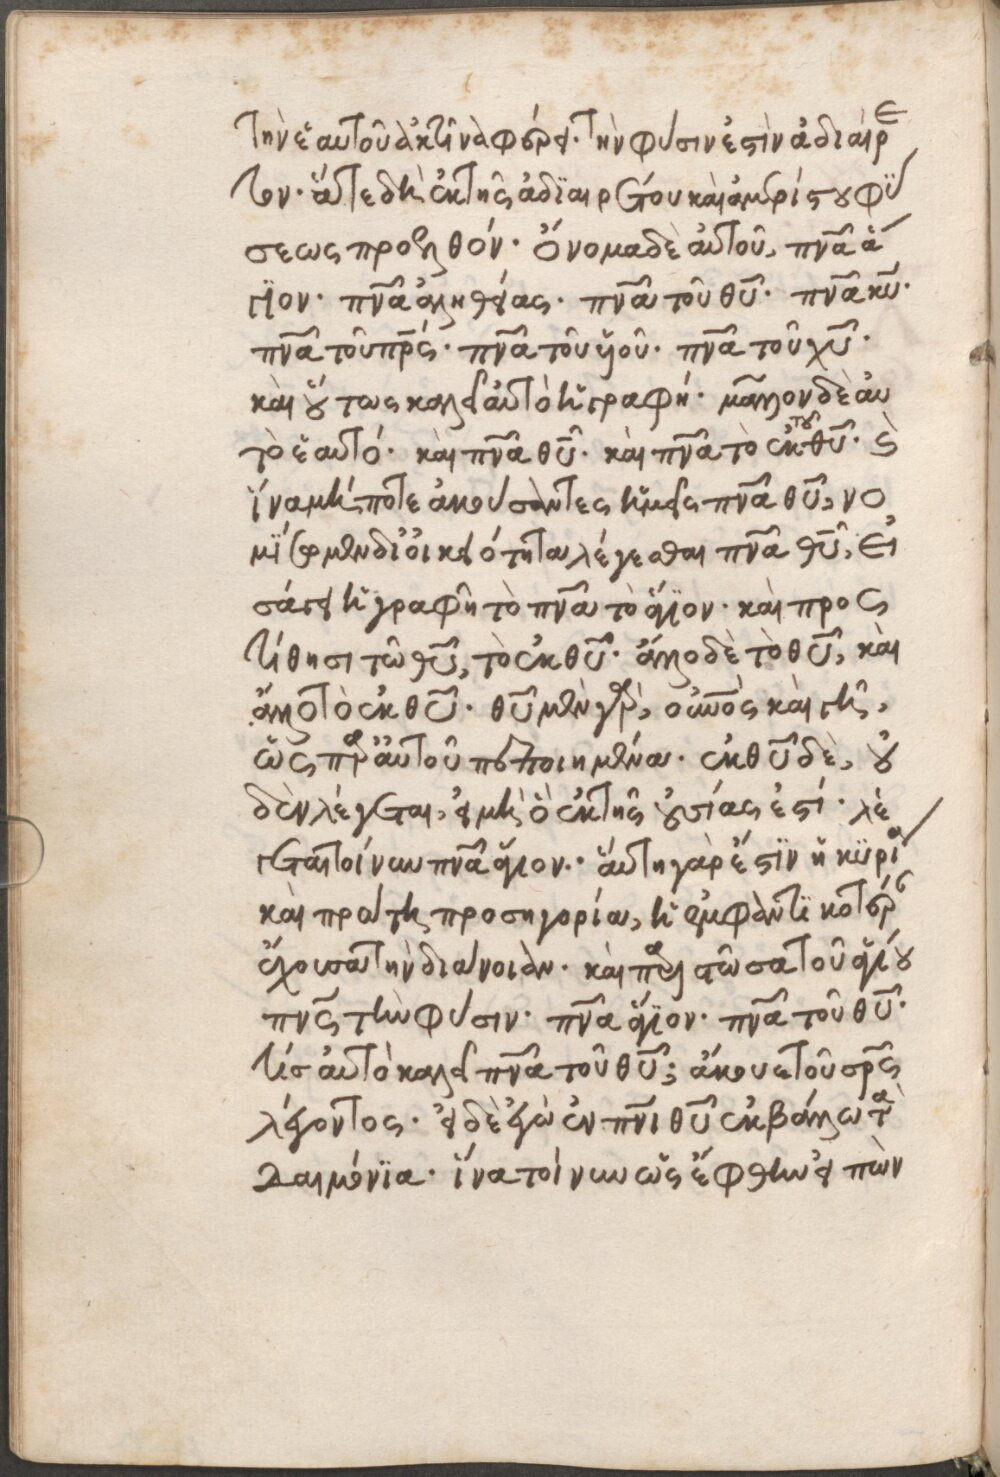 τὴν ἑαυτοῦ ἀκτῖνα φέρει· τὴν φύσιν ἐστὶν ἀδιαίρε
τον· ἅτε δὴ ἐκ τῆς ἀδϊαιρέτου καὶ ἀμερίστου φϋ
σεως προελθόν· ὄνομα δὲ αὐτοῦ, πνᾶ ἅ
γϊον· πνᾶ ἀληθείας· πνᾶ τοῦ θῦ· πνᾶ κῦ·
πνᾶ τοῦ πρς· πνᾶ τοῦ υἱοῦ· πνᾶ τοῦ χῦ·
καὶ οὕτως καλεῖ αὐτὸ ἡ γραφή· μᾶλλον δὲ αὐ
τὸ ἑαυτό· καὶ πνᾶ θῦ· καὶ πνᾶ τὸ ἐκ τοῦ θῦ·
ἵνα μή ποτε ἀκούσαντες ἡμεῖς πνᾶ θῦ, νο
μϊσωμεν δι' οἰκειότητα λέγεσθαι πνᾶ θῦ, εἰ
σάγει ἡ γραφὴ τὸ πνᾶ τὸ ἅγϊον· καὶ προς
τίθησι τῶ θῦ, τὸ ἐκ θῦ· ἄλλο δὲ τὸ θῦ, καὶ
ἄλλο τὸ ἐκ θῦ· θῦ μὲν γὰρ, οὐνος καὶ γῆ,
ὡς παρ' αὐτοῦ πεποιημένα· ἐκ θῦ δὲ, οὐ
δὲν λέγεται, εἰ μὴ ὃ ἐκ τῆς οὐσίας ἐστί· λέ
γεται τοίνυν πνᾶ ἅγιον· αὕτη γάρ ἐστϊν ἡ κϋρία
καὶ πρώτη προσηγορία, ἡ ἐμφαντϊκοτέρα
ἔχουσα τὴν διάνοιαν· καὶ παριστῶσα τοῦ ἁγίου
πνς τὴν φύσιν· πνᾶ ἅγϊον· πνᾶ τοῦ θῦ·
τίς αὐτὸ καλεῖ πνᾶ τοῦ θῦ; ἄκουε τοῦ σρς
λέγοντος· εἰ δὲ ἐγὼ ἐν πνι θῦ ἐκβάλλω τὰ
δαιμόνϊα· ἵνα τοίνυν ὡς ἔφθην εἰπὼν